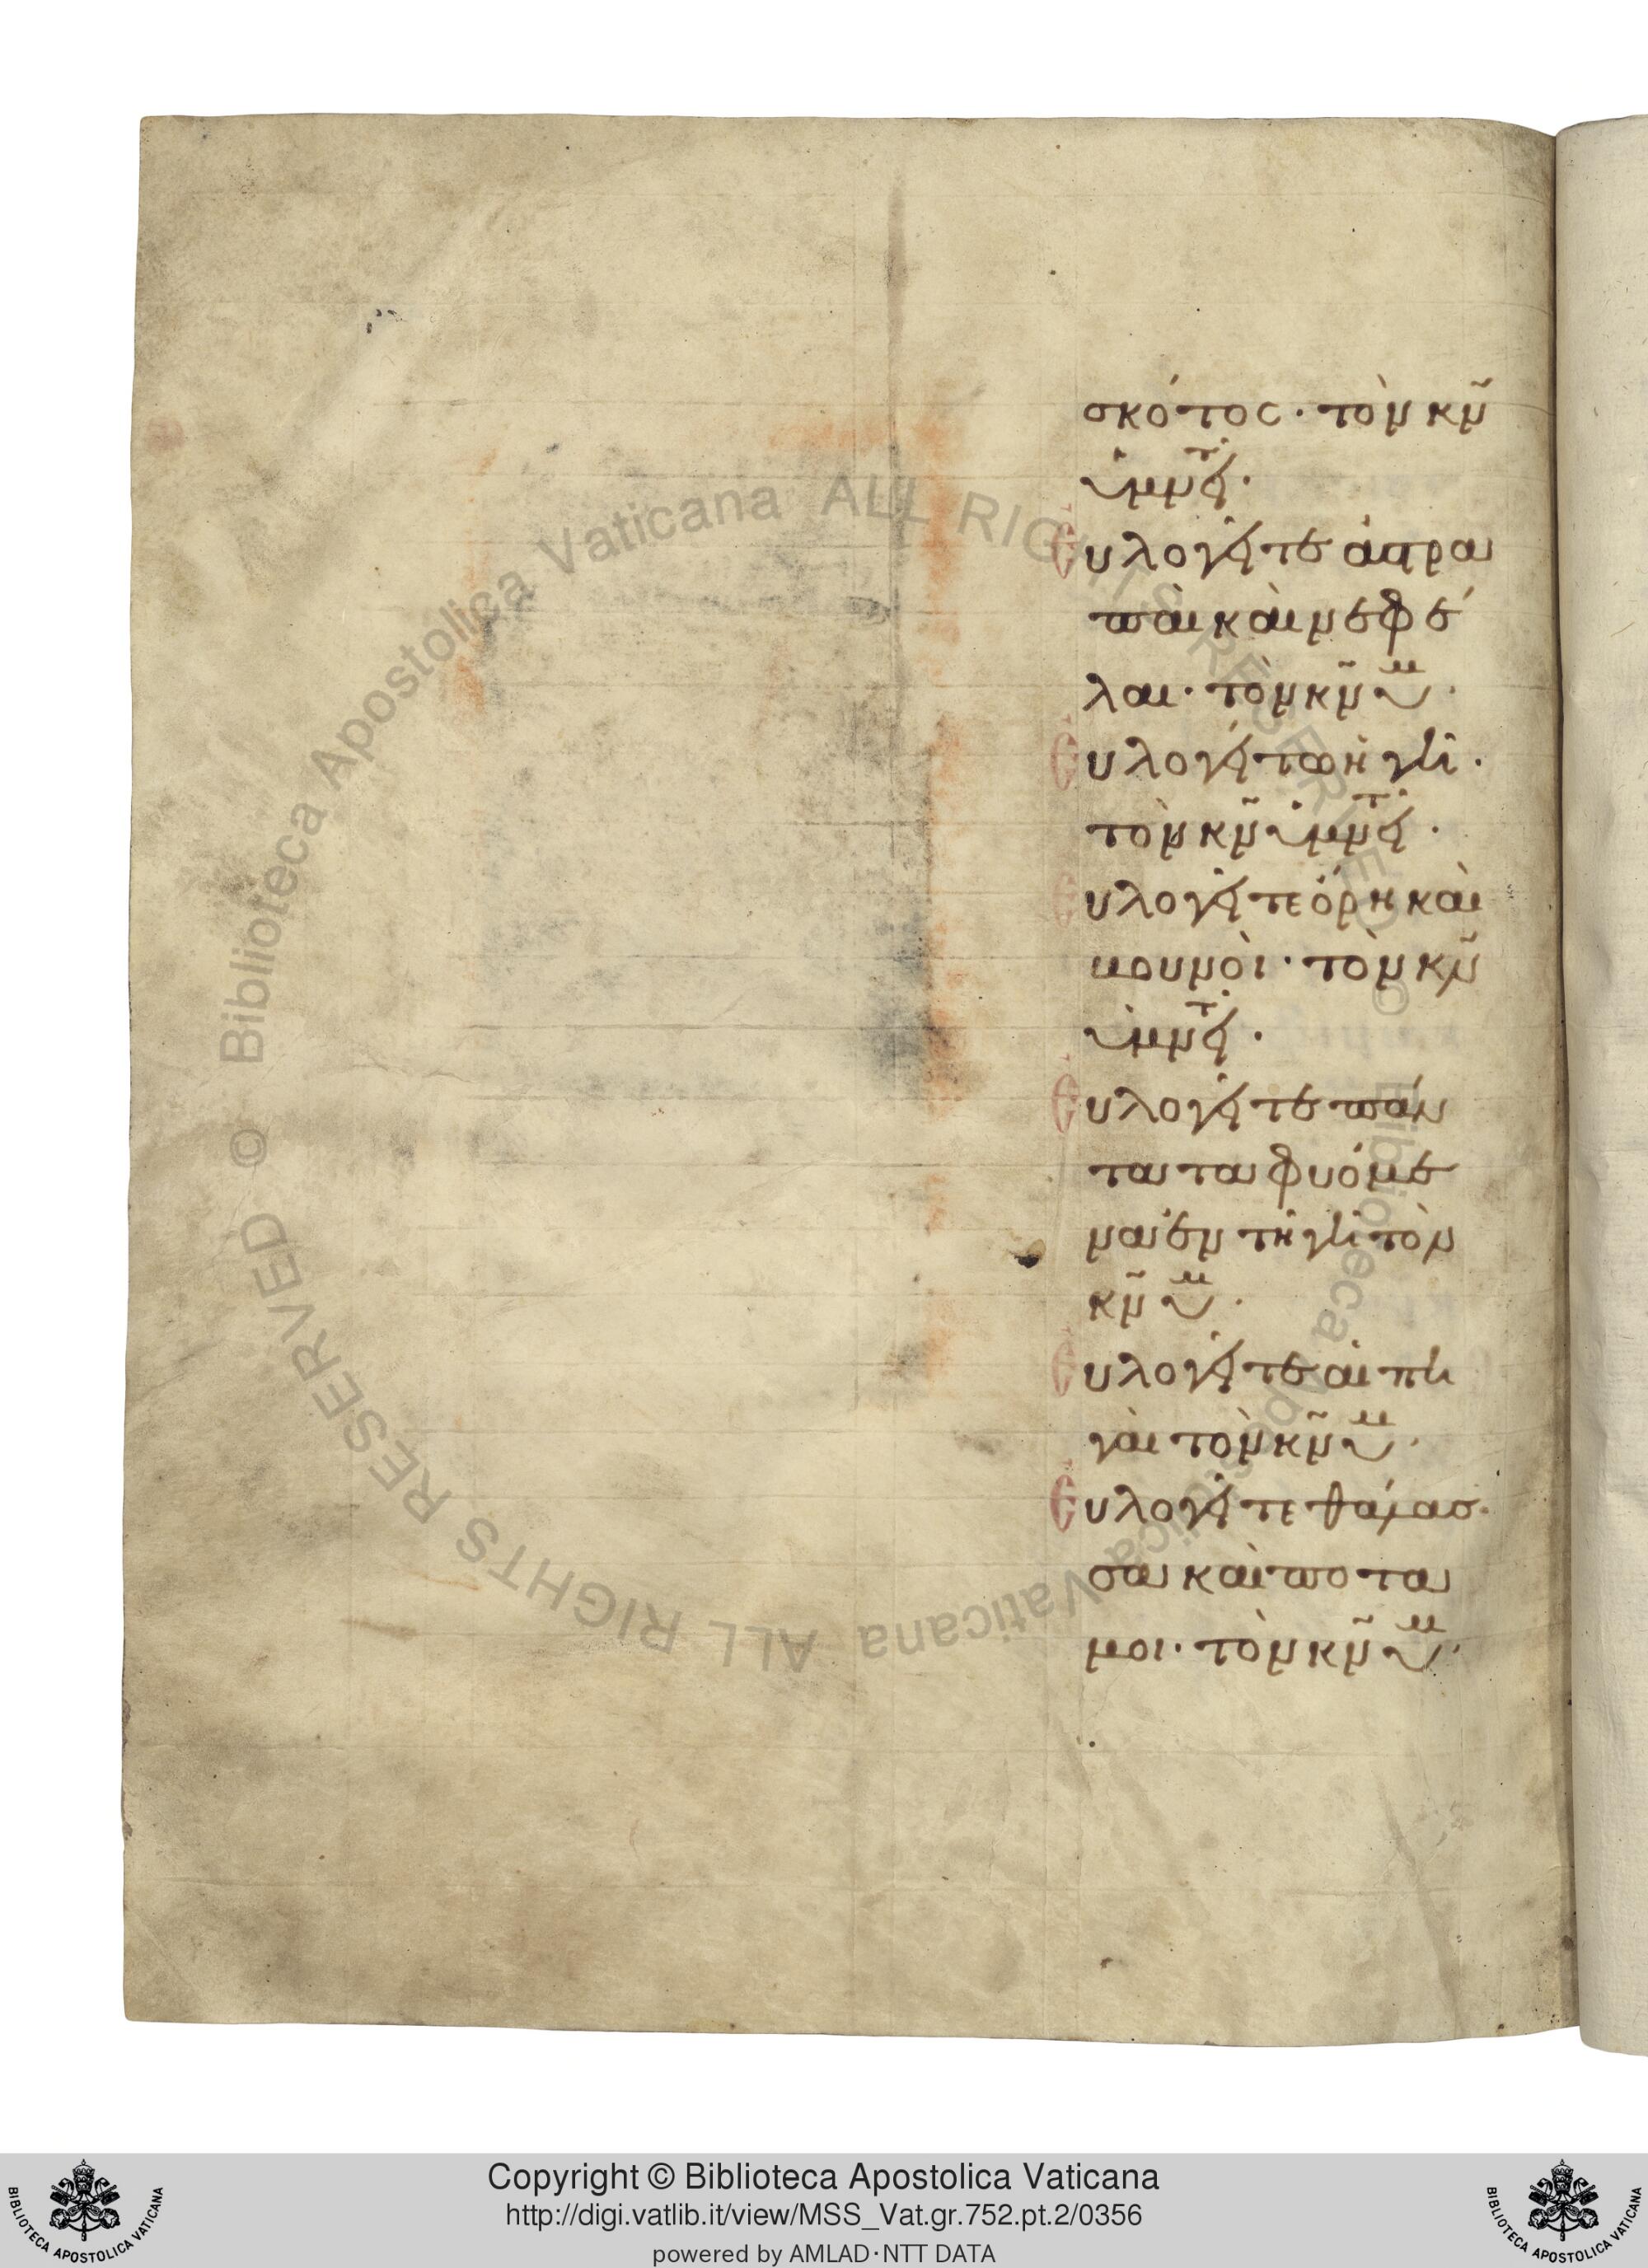 σκότος· τὸν κ̃ν
ὑμνεῖτ·
Εὐλογεῖτε ἀστρα
παὶ καὶ νεφέ
λαι· τὸν κ̃ν ὑμ·
Εὐλογείτω ἡ γῆ·
τὸν κ̃ν ὑμνεῖτ·
Εὐλογεῖτε ὄρη καὶ
βουνοὶ· τὸν κ̃ν
ὑμνεῖτ·
Εὐλογεῖτε πάν
τα τα φυόμε
να ἐν τῆ γῆ τὸν
κ̃ν ὑμ·
Εὐλογεῖτε αἱ πη
γαὶ τὸν κ̃ν ὑμ·
Εὐλογεῖτε θάλασ
σα καὶ ποτα
μοι· τὸν κ̃ν ὑμ·
Biblioteca Apostolica Vaticana ALL RIGHTS RESERVED © Biblioteca Apostolica Vaticana ALL RIGHTS RESERVED ©
Copyright © Biblioteca Apostolica Vaticana
http://digi.vatlib.it/view/MSS_Vat.gr.752.pt.2/0356
powered by AMLAD·NTT DATA
BIBLIOTECA APOSTOLICA VATICANA
BIBLIOTECA APOSTOLICA VATICANA